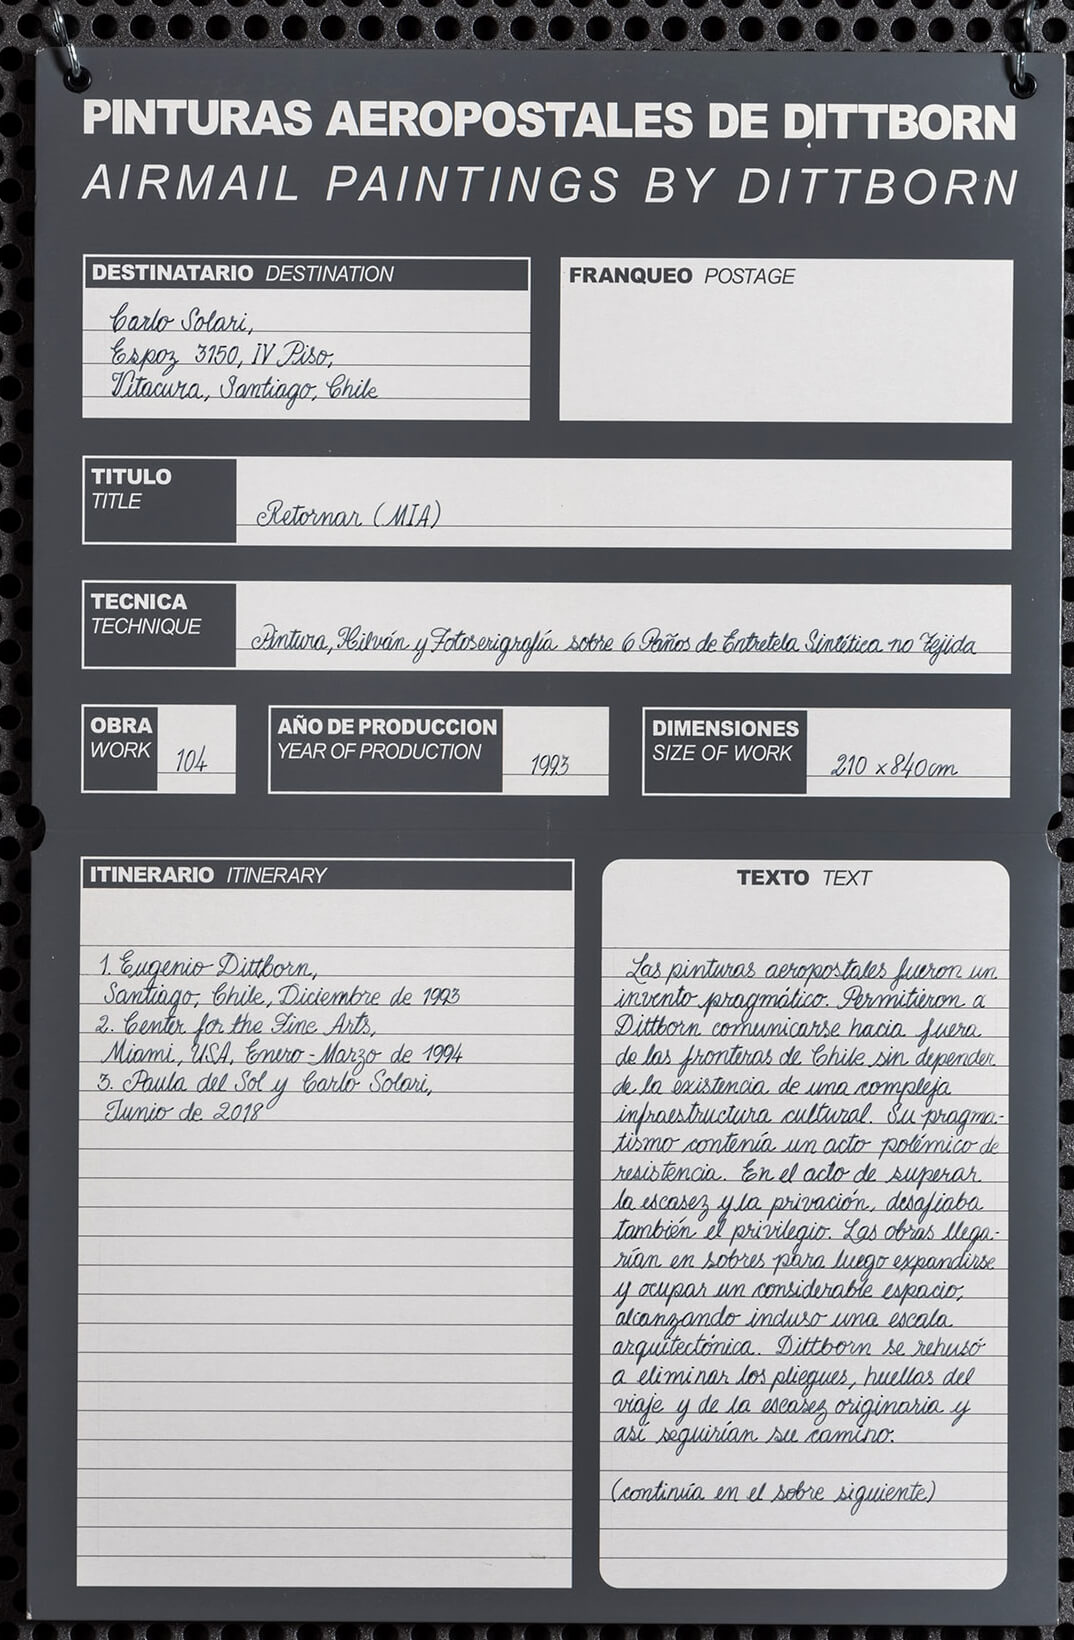 PINTURAS AEROPOSTALES DE DITTBORN
AIRMAIL PAINTINGS BY DITTBORN
DESTINATARIO DESTINATION
Carlo Solari,
Espoz 3150, IV Piso,
Vitacura, Santiago, Chile
FRANQUEO POSTAGE
TITULO
TITLE
Retornar (MIA)
TECNICA
TECHNIQUE
Pintura, Hilván y Fotoserigrafía sobre 6 Paños de Entretela Sintética no Tejida
OBRA
WORK
104
AÑO DE PRODUCCION
YEAR OF PRODUCTION
1993
DIMENSIONES
SIZE OF WORK
210 x 840cm
ITINERARIO ITINERARY
1. Eugenio Dittborn,
Santiago, Chile, Diciembre de 1993
2. Center for the Fine Arts,
Miami, USA, Enero-Marzo de 1994
3. Paula del Sol y Carlo Solari,
Junio de 2018
TEXTO TEXT
Las pinturas aeropostales fueron un
invento pragmático. Permitieron a
Dittborn comunicarse hacia fuera
de las fronteras de Chile sin depender
de la existencia de una compleja
infraestructura cultural. Su pragma-
tismo contenía un acto polémico de
resistencia. En el acto de superar
la escasez y la privación, desafiaba
también el privilegio. Las obras llega-
rían en sobres para luego expandirse
y ocupar un considerable espacio,
alcanzando incluso una escala
arquitectónica. Dittborn se rehusó
a eliminar los pliegues, huellas del
viaje y de la escasez originaria y
así seguirían su camino.
(continúa en el sobre siguiente)